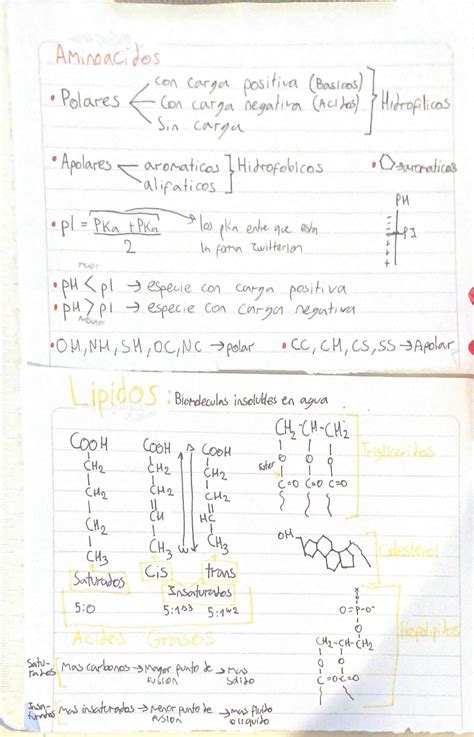 Aminoacidos
• Polares
con carga positiva (Basicos)
Con carga negativa (Acidos)
Sin carga
Hidrofilicos
• Apolares
aromaticos
alifaticos
Hidrofobicos
• → aromaticos
• pI = PKa + PKa / 2
los pKa entre que esta
la forma zwitterion
PH
PI
• pH < pI → especie con carga positiva
• pH > pI → especie con carga negativa
• OH, NH, SH, OC, NC → polar
• CC, CH, CS, SS → Apolar
Lipidos: Biomoleculas insolubles en agua
COOH
CH2
CH2
CH2
CH3
Saturados
5:0
COOH
CH2
CH2
CH
CH3
Cis
COOH
CH2
CH2
HC
CH3
trans
Insaturados
CH2-CH-CH2
O O O
Ester
C=O C=O C=O
Trigliceridos
OH
Colesterol
O=P-O-
O
CH2-CH-CH2
O O
C=O C=O
Fosfolipidos
Acidos Grasos
Satu-
rados
Mas carbonos → Mayor punto de fusion → mas solido
Insa-
turados
Mas insaturados → Menor punto de fusion → mas fluido o liquido